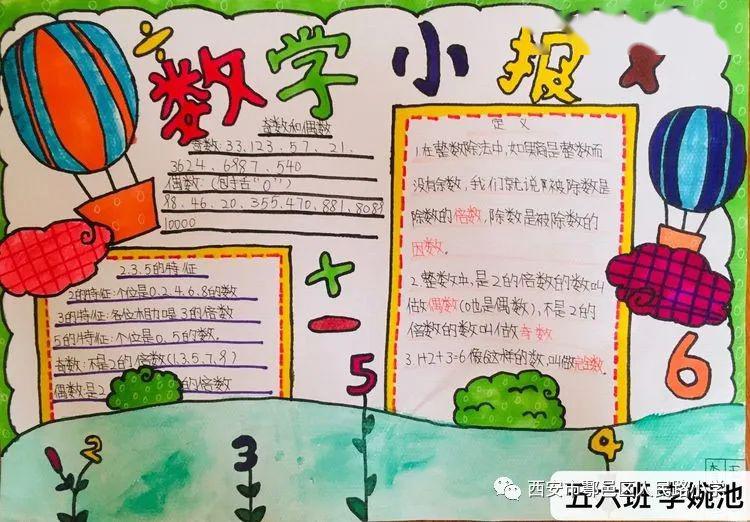 ÷
数学小报
×
奇数和偶数
奇数:33.123.57、21.
3624、6987、540
偶数:(包括"0")
88、46、20、355.470、881、8089
10000
2.3.5的特征
2的特征:个位是0.2.4.6.8的数
3的特征:各位相加是3的倍数
5的特征:个位是0.5的数。
奇数:不是2的倍数(1.3.5.7.8)
偶数是2 的倍数
+
−
定义
1.在整数除法中,如果商是整数而
没有余数,我们就说被除数是
除数的倍数,除数是被除数的
因数。
2.整数中,是2的倍数的数叫
做偶数(0也是偶数),不是2的
倍数的数叫做奇数
3.1+2+3=6像6这样的数,叫做完全数。
1
2
3
5
4
6
西安市鄠邑区人民路小学
五六班 李婉池